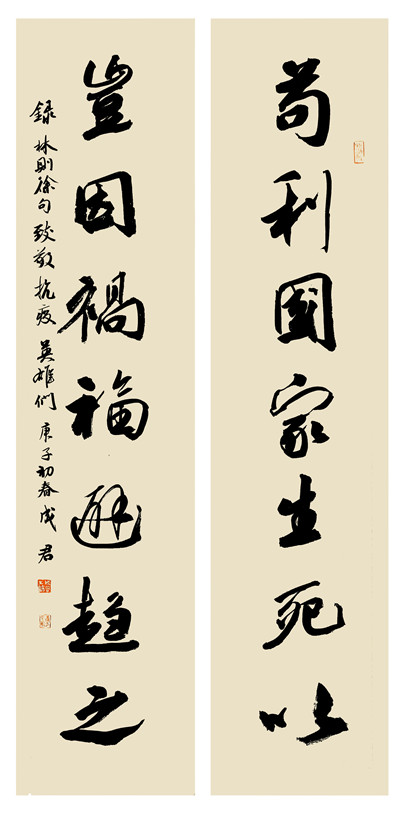 苟利國家生死以
豈因禍福避趨之
録林则徐句致敬抗疫英雄们庚子初春成君